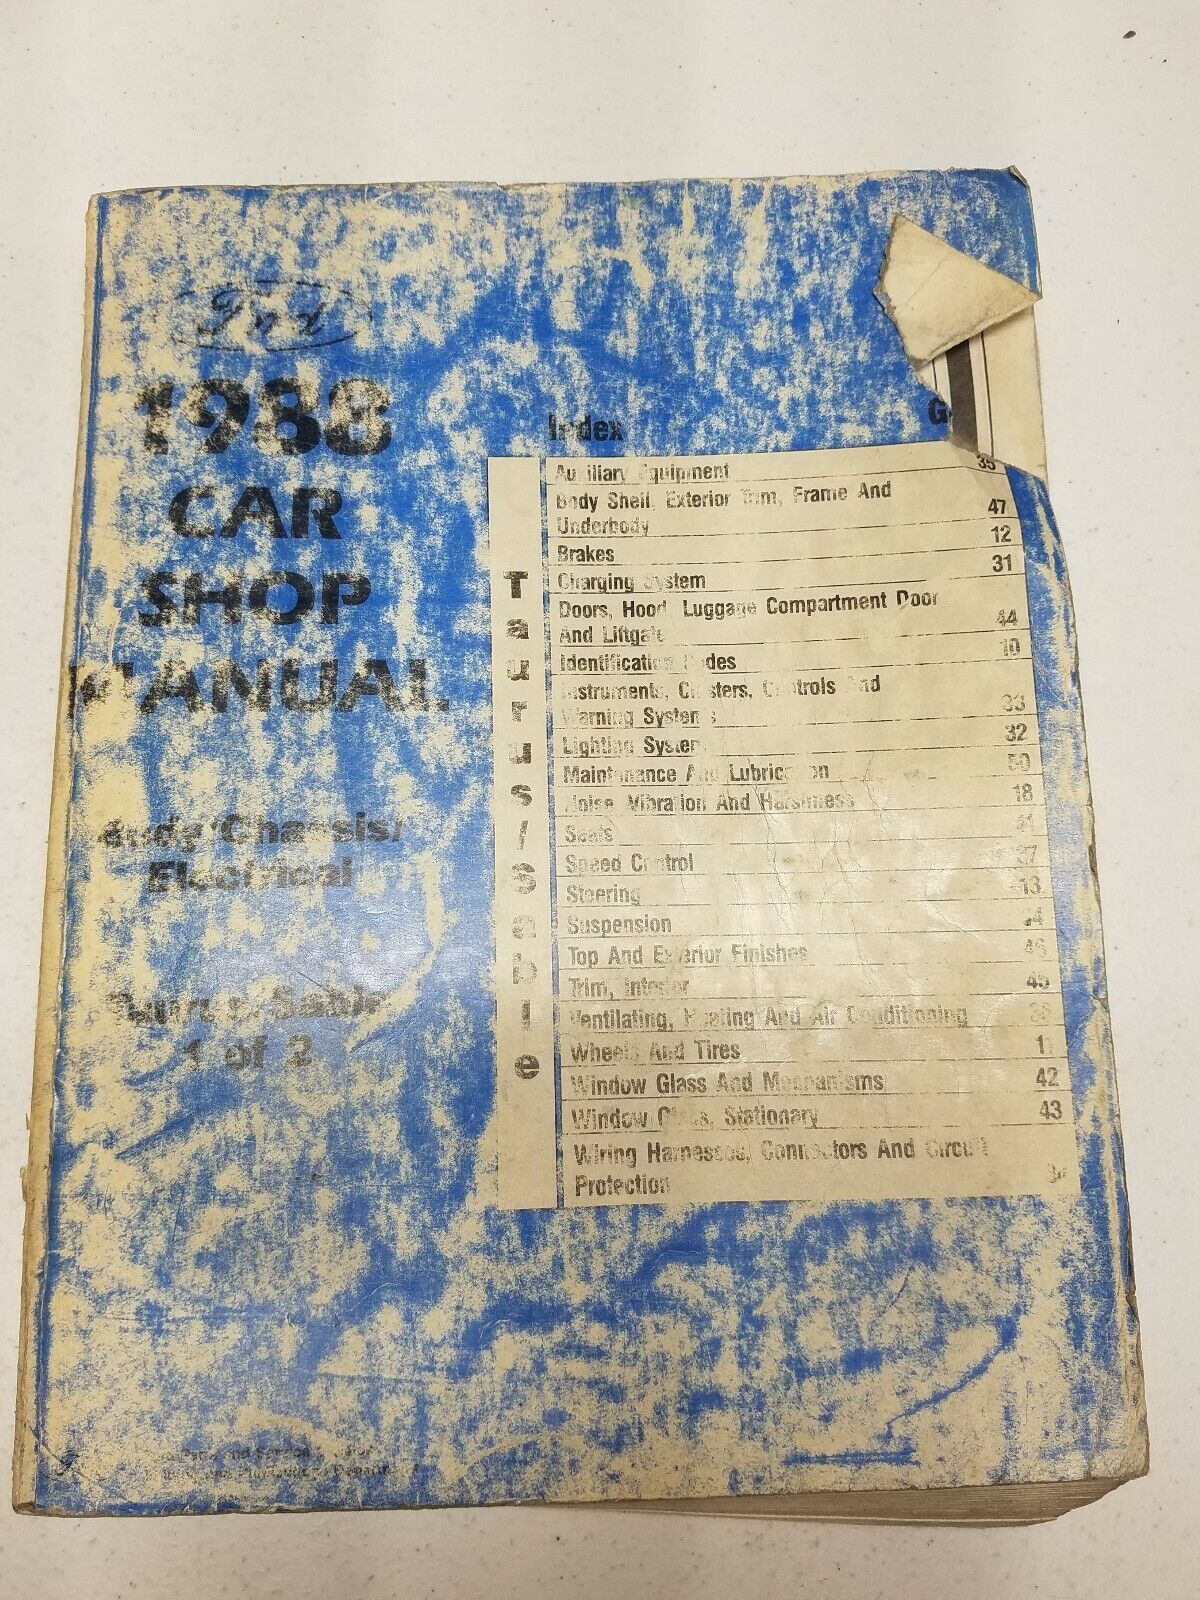 Ford
1988
CAR
SHOP
MANUAL
Body/Chassis/
Electrical
Taurus/Sable
1 of 2
Index
Taurus/Sable
Auxiliary Equipment 35
Body Shell, Exterior Trim, Frame And
Underbody 47
Brakes 12
Charging System 31
Doors, Hood, Luggage Compartment Door
And Liftgate 44
Identification Codes 10
Instruments, Clusters, Controls And
Warning Systems 33
Lighting System 32
Maintenance And Lubrication 50
Noise, Vibration And Harshness 18
Seats 41
Speed Control 37
Steering 13
Suspension 14
Top And Exterior Finishes 46
Trim, Interior 45
Ventilating, Heating And Air Conditioning 36
Wheels And Tires 11
Window Glass And Mechanisms 42
Window Glass, Stationary 43
Wiring Harnesses, Connectors And Circuit
Protection